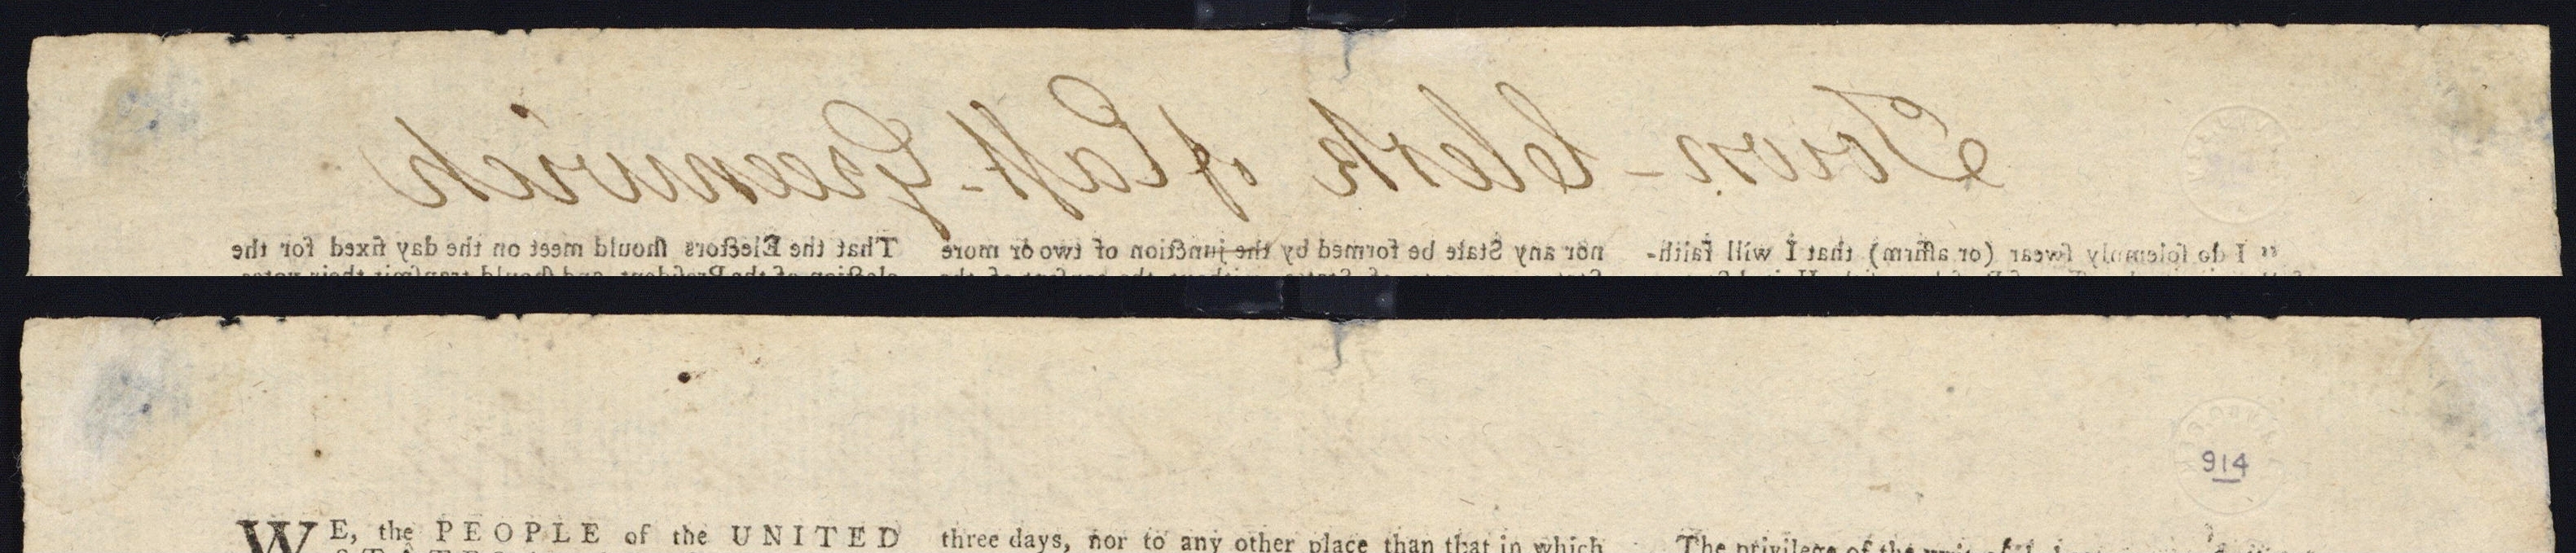 Town-Clerk of Eaſt-Greenwich
“ I do ſolemnly ſwear (or affirm) that I will faith-
nor any State be formed by the junction of two or more
That the Electors ſhould meet on the day fixed for the
election of the Preſident, and ſhould tranſmit their votes
914
WE, the PEOPLE of the UNITED
three days, nor to any other place than that in which
The privilege of the writ of